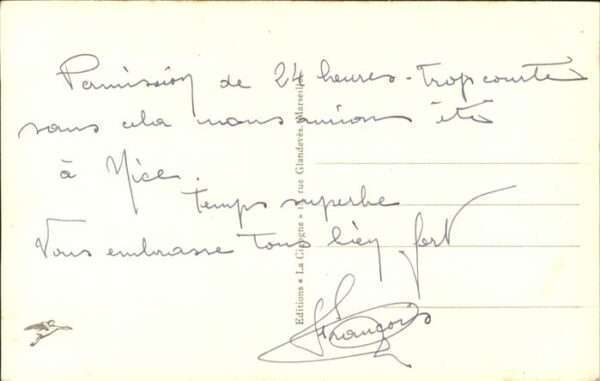 Permission de 24 heures - trop courte
sans cela nous aurions été
à Nice.
temps superbe
Vous embrasse tous bien fort
François
Editions « La Cigogne » rue Glandevès, Marseille